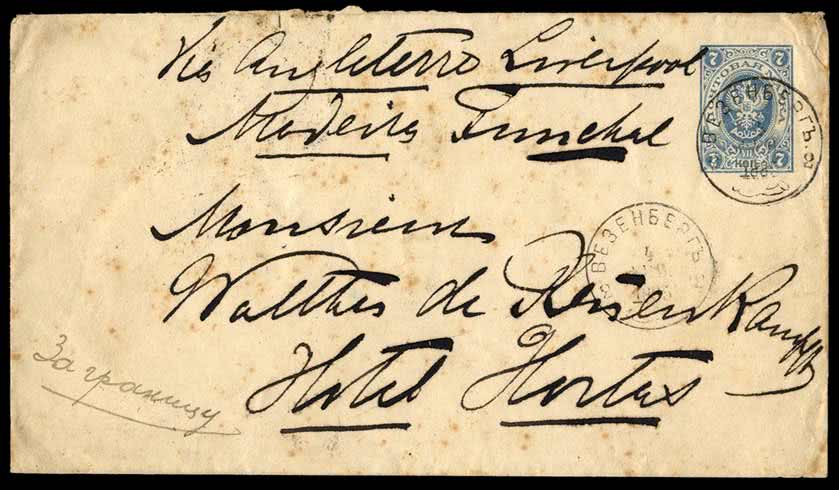 Via Angleterre Liverpool
Madeira Funchal
7 ПОЧТОВАЯ МАРКА 7
7 КОП. 7
ВЕЗЕНБЕРГЪ
Monsieur
ВЕЗЕНБЕРГЪ
4
Walther de Rennenkampff
Hotel Hortas
За границу